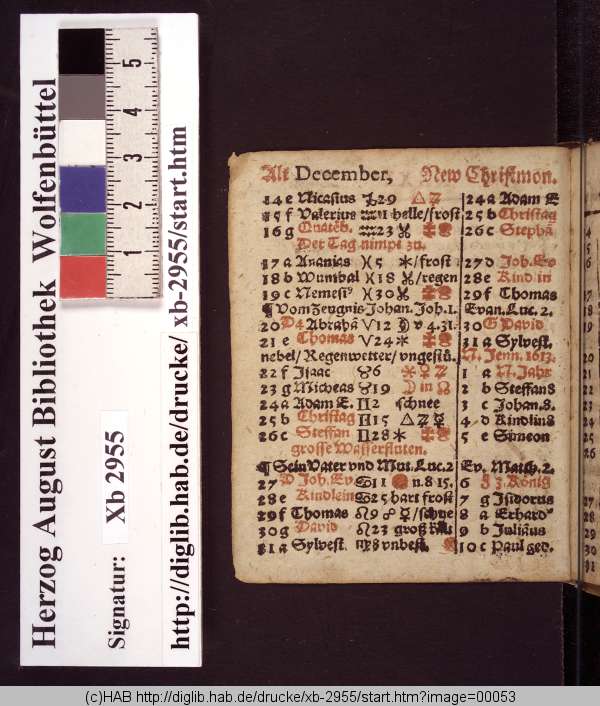 Herzog August Bibliothek Wolfenbüttel
Signatur: Xb 2955
http://diglib.hab.de/drucke/ xb-2955/start.htm
1 2 3 4 5
Alt December, New Christmon.
14 e Nicasius 29 24 a Adam E
15 f Valerius 11 helle/frost 25 b Christag
16 g Quatēb. 23 26 c Stephā
Der Tag nimpt zu.
17 a Ananias 5 /frost 27 d Joh. Ev
18 b Wumbal 18 /regen 28 e Kind in
19 c Nemesi⁹ 30 29 f Thomas
¶ Vom Zeugnis Johan. Joh. 1. Evan. Luc. 2.
20 D 4 Abrahā 12 v 4.31. 30 G David
21 e Thomas 24 31 a Sylvest.
nebel/Regenwetter/vngestü. N. Jenn. 1613.
22 f Isaac 6 1 a N. Jahr
23 g Micheas 19 in 2 b Steffans
24 a Adam E. 2 schnee 3 c Johan. 8.
25 b Christag 15 4 d Kindlins
26 c Steffan 28 5 e Simeon
grosse Wasserfluten.
¶ Sein Vater vnd Mut. Luc. 2 Ev. Matth. 2.
27 D Joh. Ev 11 n. 8 15. 6 F 3. König
28 e Kindlein 25 hart frost 7 g Isidorus
29 f Thomas 9 /schne 8 a Erhard
30 g David 23 groß 9 b Julians
31 a Sylvest. 8 vnbest. 10 c Paul ged.
(c)HAB http://diglib.hab.de/drucke/xb-2955/start.htm?image=00053